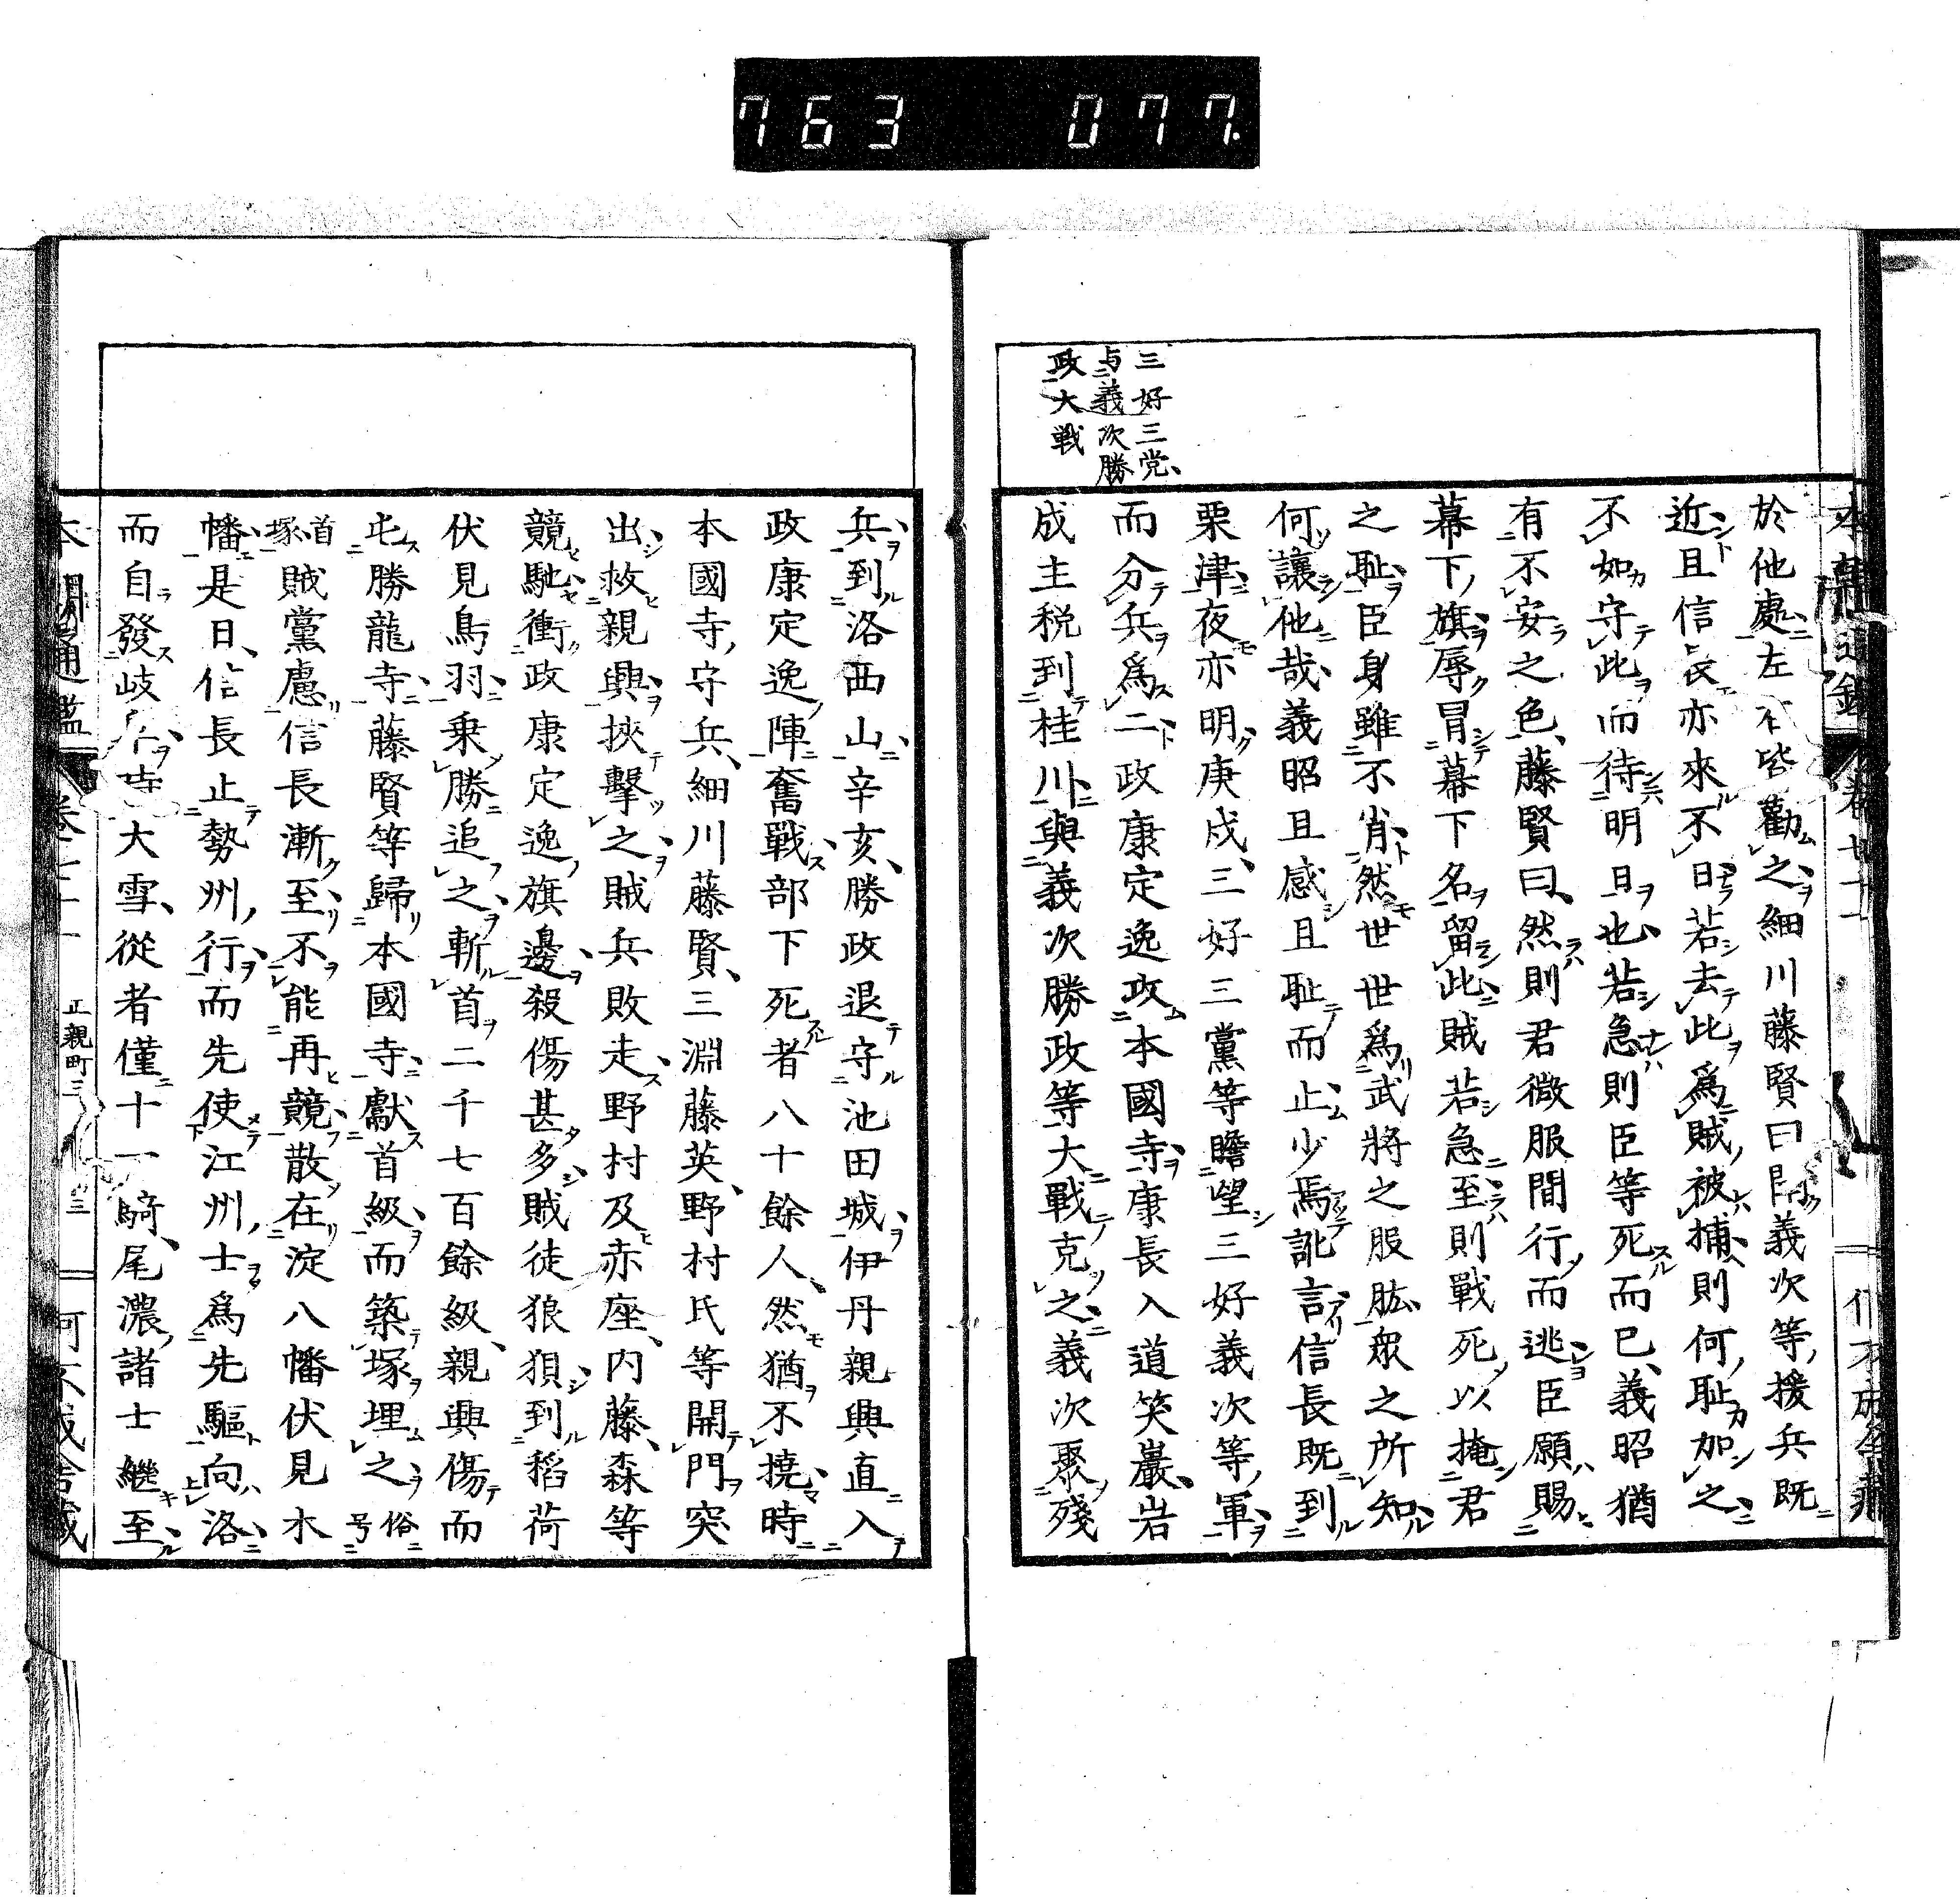 763 077.
三好三党
与義次勝
政大戦
於他處左右皆勸之細川藤賢曰聞義次等援兵既
近且信長亦來不日若去此爲賊被捕則何恥加之
不如守此而待明旦也若急則臣等死而已義昭猶
有不安之色藤賢曰然則君微服間行而逃臣願賜
幕下旗辱冒幕下名留此賊若急至則戰死以掩君
之恥臣身雖不肖然世世爲武將之股肱衆之所知
何讓他哉義昭且感且恥而止少焉訛言信長既到
栗津夜亦明庚戌三好三黨等瞻望三好義次等軍
而分兵爲二政康定逸政本國寺康長入道笑巖岩
成主税到桂川與義次勝政等大戰克之義次聚殘
兵到洛西山辛亥勝政退守池田城伊丹親興直入
政康定逸陣奮戰部下死者八十餘人然猶不撓時
本國寺守兵細川藤賢三淵藤英野村氏等開門突
出救親興挾擊之賊兵敗走野村及赤座内藤森等
競馳衝政康定逸旗邊殺傷甚多賊徒狼狽到稻荷
伏見鳥羽乗勝追之斬首二千七百餘級親興傷而
屯勝龍寺藤賢等歸本國寺獻首級而築塚埋之俗号
首塚賊黨慮信長漸至不能再競散在淀八幡伏見木
幡是日信長止勢州行而先使江州士爲先驅向洛
而自發岐阜時大雪從者僅十一騎尾濃諸士繼至
本朝通鑑 卷七十一 正親町三